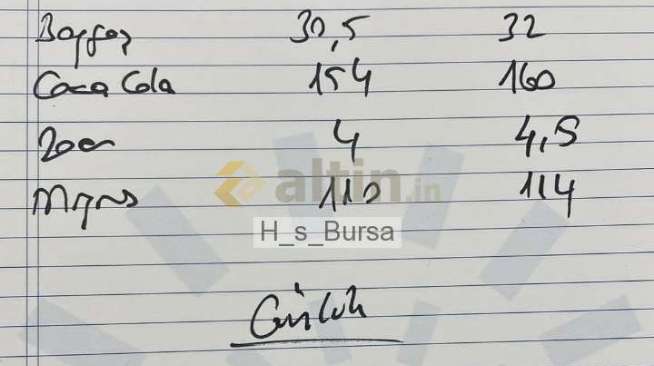 Bagfaş 30,5 32
Coca Cola 154 160
Zoren 4 4,5
Mgros 110 114
altin.in
H_s_Bursa
Günlük